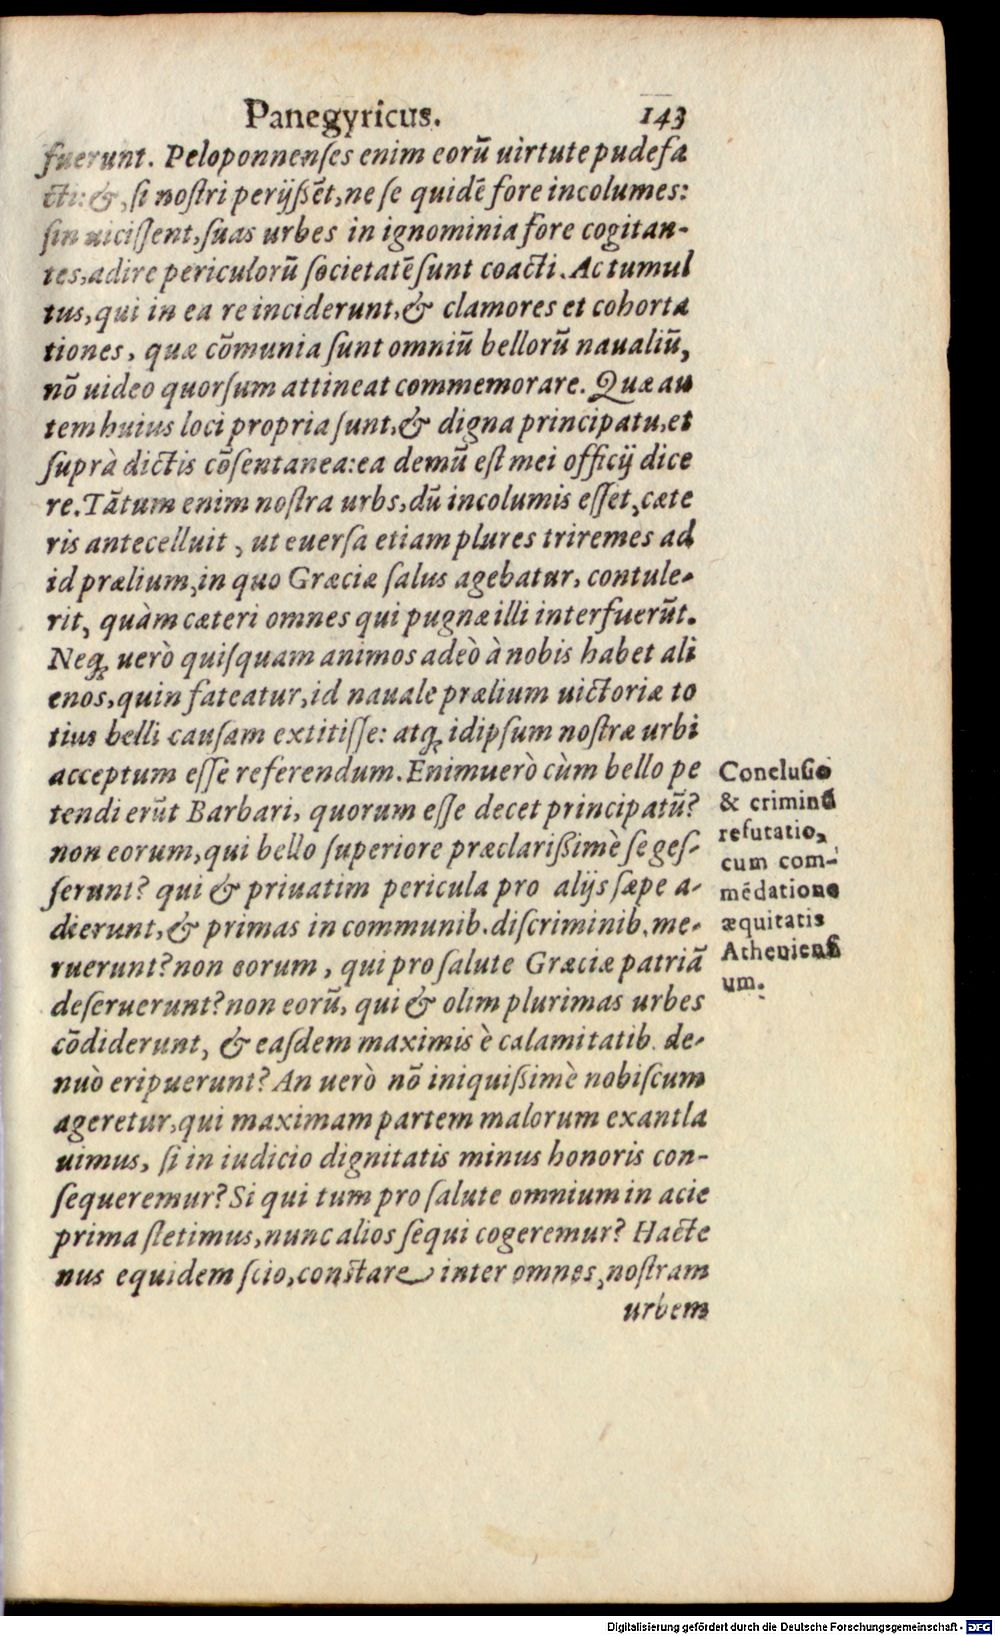 Panegyricus. 143
fuerunt. Peloponnenſes enim eorū uirtute pudefa
cti: &, ſi noſtri perijßēt, ne ſe quidē fore incolumes:
ſin uiciſſent, ſuas urbes in ignominia fore cogitan-
tes, adire periculorū ſocietatē ſunt coacti. Ac tumul
tus, qui in ea re inciderunt, & clamores et cohorta
tiones, quæ cōmunia ſunt omniū bellorū naualiū,
nō uideo quorſum attineat commemorare. Quæ au
tem huius loci propria ſunt, & digna principatu, et
ſuprà dictis cōſentanea: ea demū eſt mei officij dice
re. Tātum enim noſtra urbs, dū incolumis eſſet, cæte
ris antecelluit, ut euerſa etiam plures triremes ad
id prælium, in quo Græciæ ſalus agebatur, contule-
rit, quàm cæteri omnes qui pugnæ illi interfuerūt.
Neq; uerò quiſquam animos adeò à nobis habet ali
enos, quin fateatur, id nauale prælium uictoriæ to
tius belli cauſam extitiſſe: atq; idipſum noſtræ urbi
acceptum eſſe referendum. Enimuerò cùm bello pe
tendi erūt Barbari, quorum eſſe decet principatū?
non eorum, qui bello ſuperiore præclarißimè ſe geſ-
ſerunt? qui & priuatim pericula pro alijs ſæpe a-
dierunt, & primas in communib. diſcriminib. me-
ruerunt? non eorum, qui pro ſalute Græciæ patriā
deſeruerunt? non eorū, qui & olim plurimas urbes
cōdiderunt, & eaſdem maximis è calamitatib. de-
nuò eripuerunt? An uerò nō iniquißimè nobiſcum
ageretur, qui maximam partem malorum exantla
uimus, ſi in iudicio dignitatis minus honoris con-
ſequeremur? Si qui tum pro ſalute omnium in acie
prima ſtetimus, nunc alios ſequi cogeremur? Hacte
nus equidem ſcio, conſtare inter omnes, noſtram
urbem
Concluſio
& criminū
refutatio,
cum com-
mēdatione
æquitatis
Athenienſi
um.
Digitalisierung gefördert durch die Deutsche Forschungsgemeinschaft - DFG